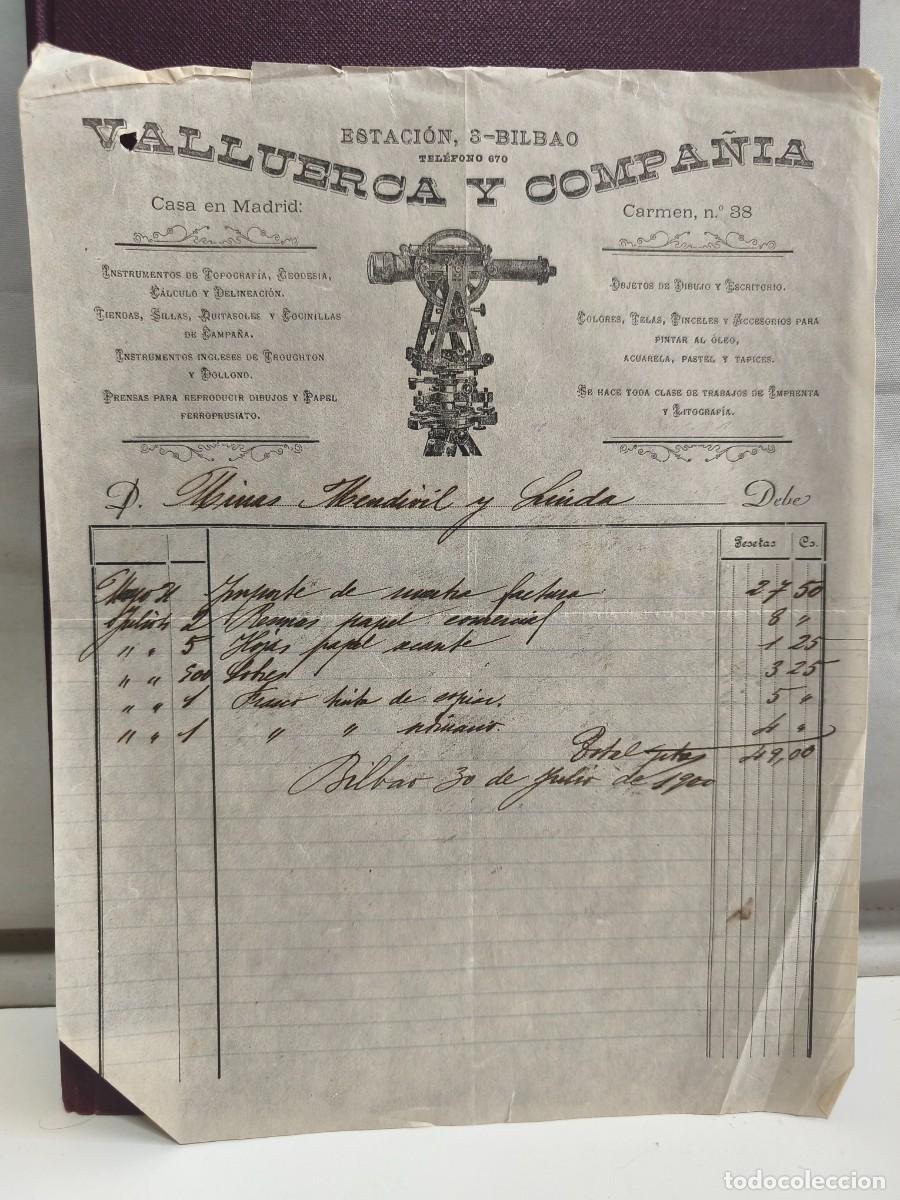 ESTACIÓN, 3-BILBAO
TELÉFONO 670
VALLUERCA Y COMPAÑIA
Casa en Madrid:
Carmen, n.º 38
INSTRUMENTOS DE TOPOGRAFÍA, GEODESIA,
CÁLCULO Y DELINEACIÓN.
TIENDAS, SILLAS, QUITASOLES Y COCINILLAS
DE CAMPAÑA.
INSTRUMENTOS INGLESES DE TROUGHTON
Y DOLLOND.
PRENSAS PARA REPRODUCIR DIBUJOS Y PAPEL
FERROPRUSIATO.
OBJETOS DE DIBUJO Y ESCRITORIO.
COLORES, TELAS, PINCELES Y ACCESORIOS PARA
PINTAR AL ÓLEO,
ACUARELA, PASTEL Y TAPICES.
SE HACE TODA CLASE DE TRABAJOS DE IMPRENTA
Y LITOGRAFÍA.
D. Minas Mendivil y Linda Debe
Pesetas Cs.
Mayo Importe de nuestra factura 27 50
2 Resmas papel comercial 8 "
" " 5 Hojas papel secante 1 25
" " 500 Sobres 3 25
" " 1 Frasco tinta de copiar. 5 "
" " 1 " " 4 "
Total ptas 49,00
Bilbao 30 de Julio de 1900
todocoleccion